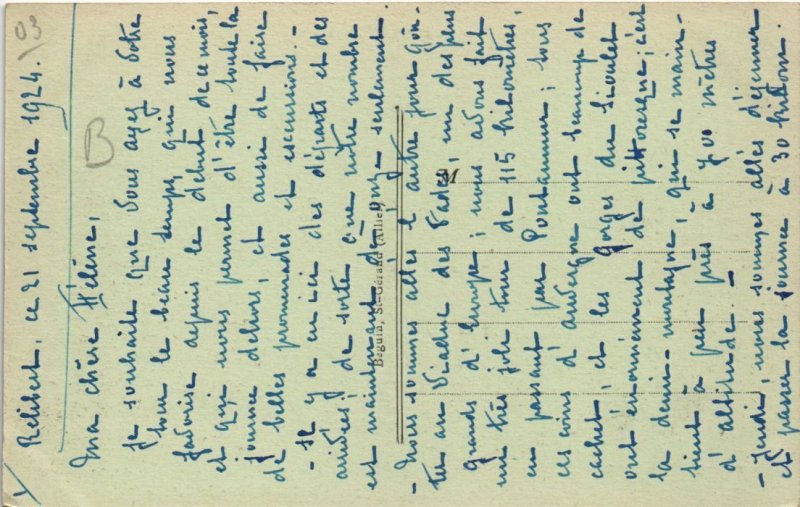 Relibert, ce 21 septembre 1924.
Ma chère Hélène,
Je souhaite que vous ayez à votre
tour le beau temps, qui nous
favorise depuis le début de ce mois,
et qui nous permet d'être toute la
journée dehors, et aussi de faire
de belles promenades et excursions. -
- Il y a eu ici des départs et des
arrivées, de sorte que notre nombre
est maintenant de onze seulement.
- Nous sommes allés l'autre jour goû-
ter au Viaduc des Fades, un des plus
grands d'Europe; nous avons fait
un très joli tour de 115 kilomètres,
en passant par Pontaumur; tous
ces coins d'Auvergne ont beaucoup de
cachet, et les gorges du Sioulet
ont énormément de pittoresque; c'est
la demi-montagne, qui se main-
tient à peu près à 700 mètres
d'altitude. -
- Jeudi, nous sommes allés déjeuner
et passer la journée à 30 kilom.
Béguin, St-Gérand (Allier)
B